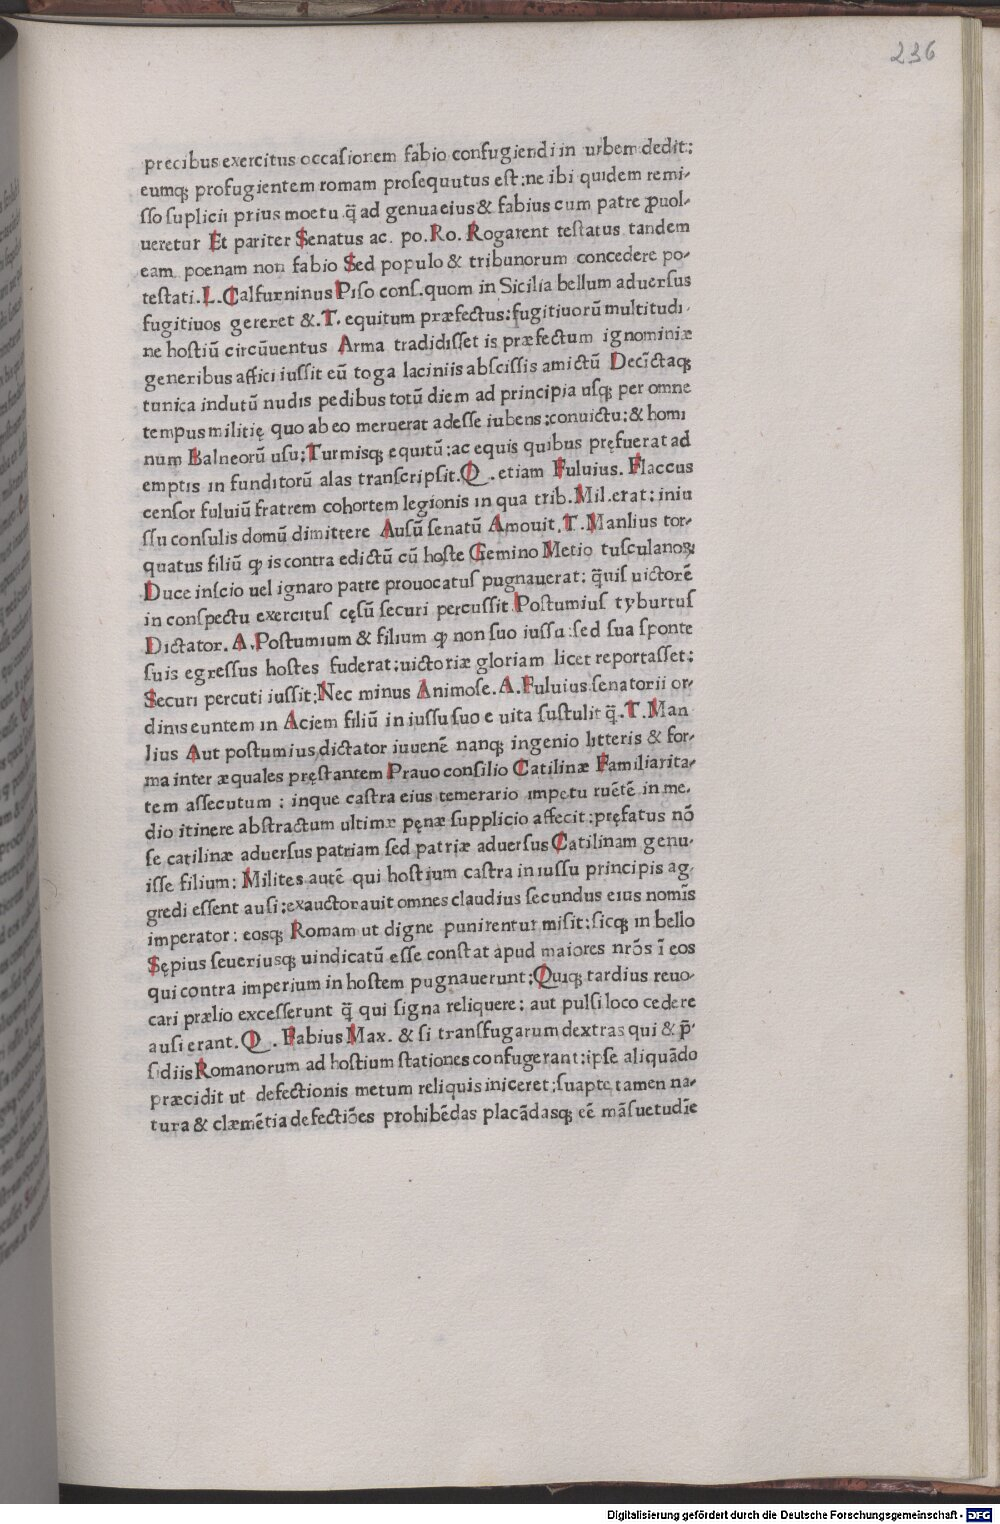 236
precibus exercitus occasionem fabio confugiendi in urbem dedit:
eumq; profugientem romam prosequutus est: ne ibi quidem remi-
sso suplicii prius moetu q̄ ad genua eius & fabius cum patre ꝓuol-
ueretur Et pariter Senatus ac. po. Ro. Rogarent testatus tandem
eam poenam non fabio Sed populo & tribunorum concedere po-
testati. L. Calfurninus Piso cons. quom in Sicilia bellum aduersus
fugitiuos gereret &. T. equitum præfectus: fugitiuorū multitudi-
ne hostiū circūuentus Arma tradidisset is præfectum ignominiæ
generibus affici iussit eū toga laciniis abscissis amictū Decīctaq;
tunica indutū nudis pedibus totū diem ad principia usq; per omne
tempus militię quo ab eo meruerat adesse iubens: conuictu: & homi
num Balneorū usu: Turmisq; equitū: ac equis quibus pręfuerat ad
emptis in funditorū alas transcripsit. Q. etiam Fuluius. Flaccus
censor fuluiū fratrem cohortem legionis in qua trib. Mil. erat: iniu
ssu consulis domū dimittere Ausū senatū Amouit. T. Manlius tor-
quatus filiū ꝙ is contra edictū cū hoste Gemino Metio tusculanoꝝ
Duce inscio uel ignaro patre prouocatus pugnauerat: q̄uis uictorē
in conspectu exercitus cęsū securi percussit Postumius tyburtus
Dictator. A. Postumium & filium ꝙ non suo iussu: sed sua sponte
suis egressus hostes fuderat: uictoriæ gloriam licet reportasset:
Securi percuti iussit: Nec minus Animose. A. Fuluius senatorii or-
dinis euntem in Aciem filiū in iussu suo e uita sustulit q̄. T. Man
lius Aut postumius dictator iuuenē nanq; ingenio litteris & for-
ma inter æquales pręstantem Prauo consilio Catilinæ Familiarita-
tem assecutum: inque castra eius temerario impetu ruētē in me-
dio itinere abstractum ultimæ pęnæ supplicio affecit: pręfatus nō
se catilinæ aduersus patriam sed patriæ aduersus Catilinam genu-
isse filium: Milites autē qui hostium castra in iussu principis ag-
gredi essent ausi: exauctorauit omnes claudius secundus eius nomīs
imperator: eosq; Romam ut digne punirentur misit: sicq; in bello
Sępius seueriusq; uindicatū esse constat apud maiores nrōs ī ęos
qui contra imperium in hostem pugnauerunt: Quiq; tardius reuo-
cari prælio excesserunt q̄ qui signa reliquere: aut pulsi loco cedere
ausi erant. Q. Fabius Max. & si transfugarum dextras qui & p̄-
sidiis Romanorum ad hostium stationes confugerant: ipse aliquādo
præcidit ut defectionis metum reliquis iniceret: suapte tamen na-
tura & clæmētia defectiōes prohibēdas placādasq; eē māsuetudīe
Digitalisierung gefördert durch die Deutsche Forschungsgemeinschaft - DFG